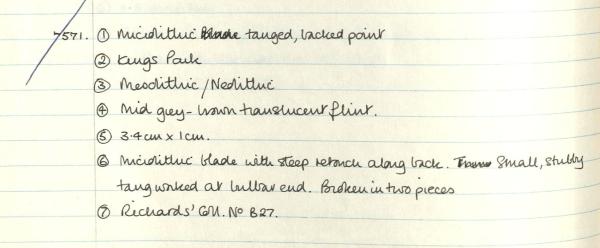 7571. ① Microlithic blade tanged, backed point
② Kings Park
③ Mesolithic/Neolithic
④ Mid grey-brown translucent flint.
⑤ 3.4cm x 1cm.
⑥ Microlithic blade with steep retouch along back. Small, stubby
tang worked at bulbar end. Broken in two pieces
⑦ Richards' Coll. No B27.